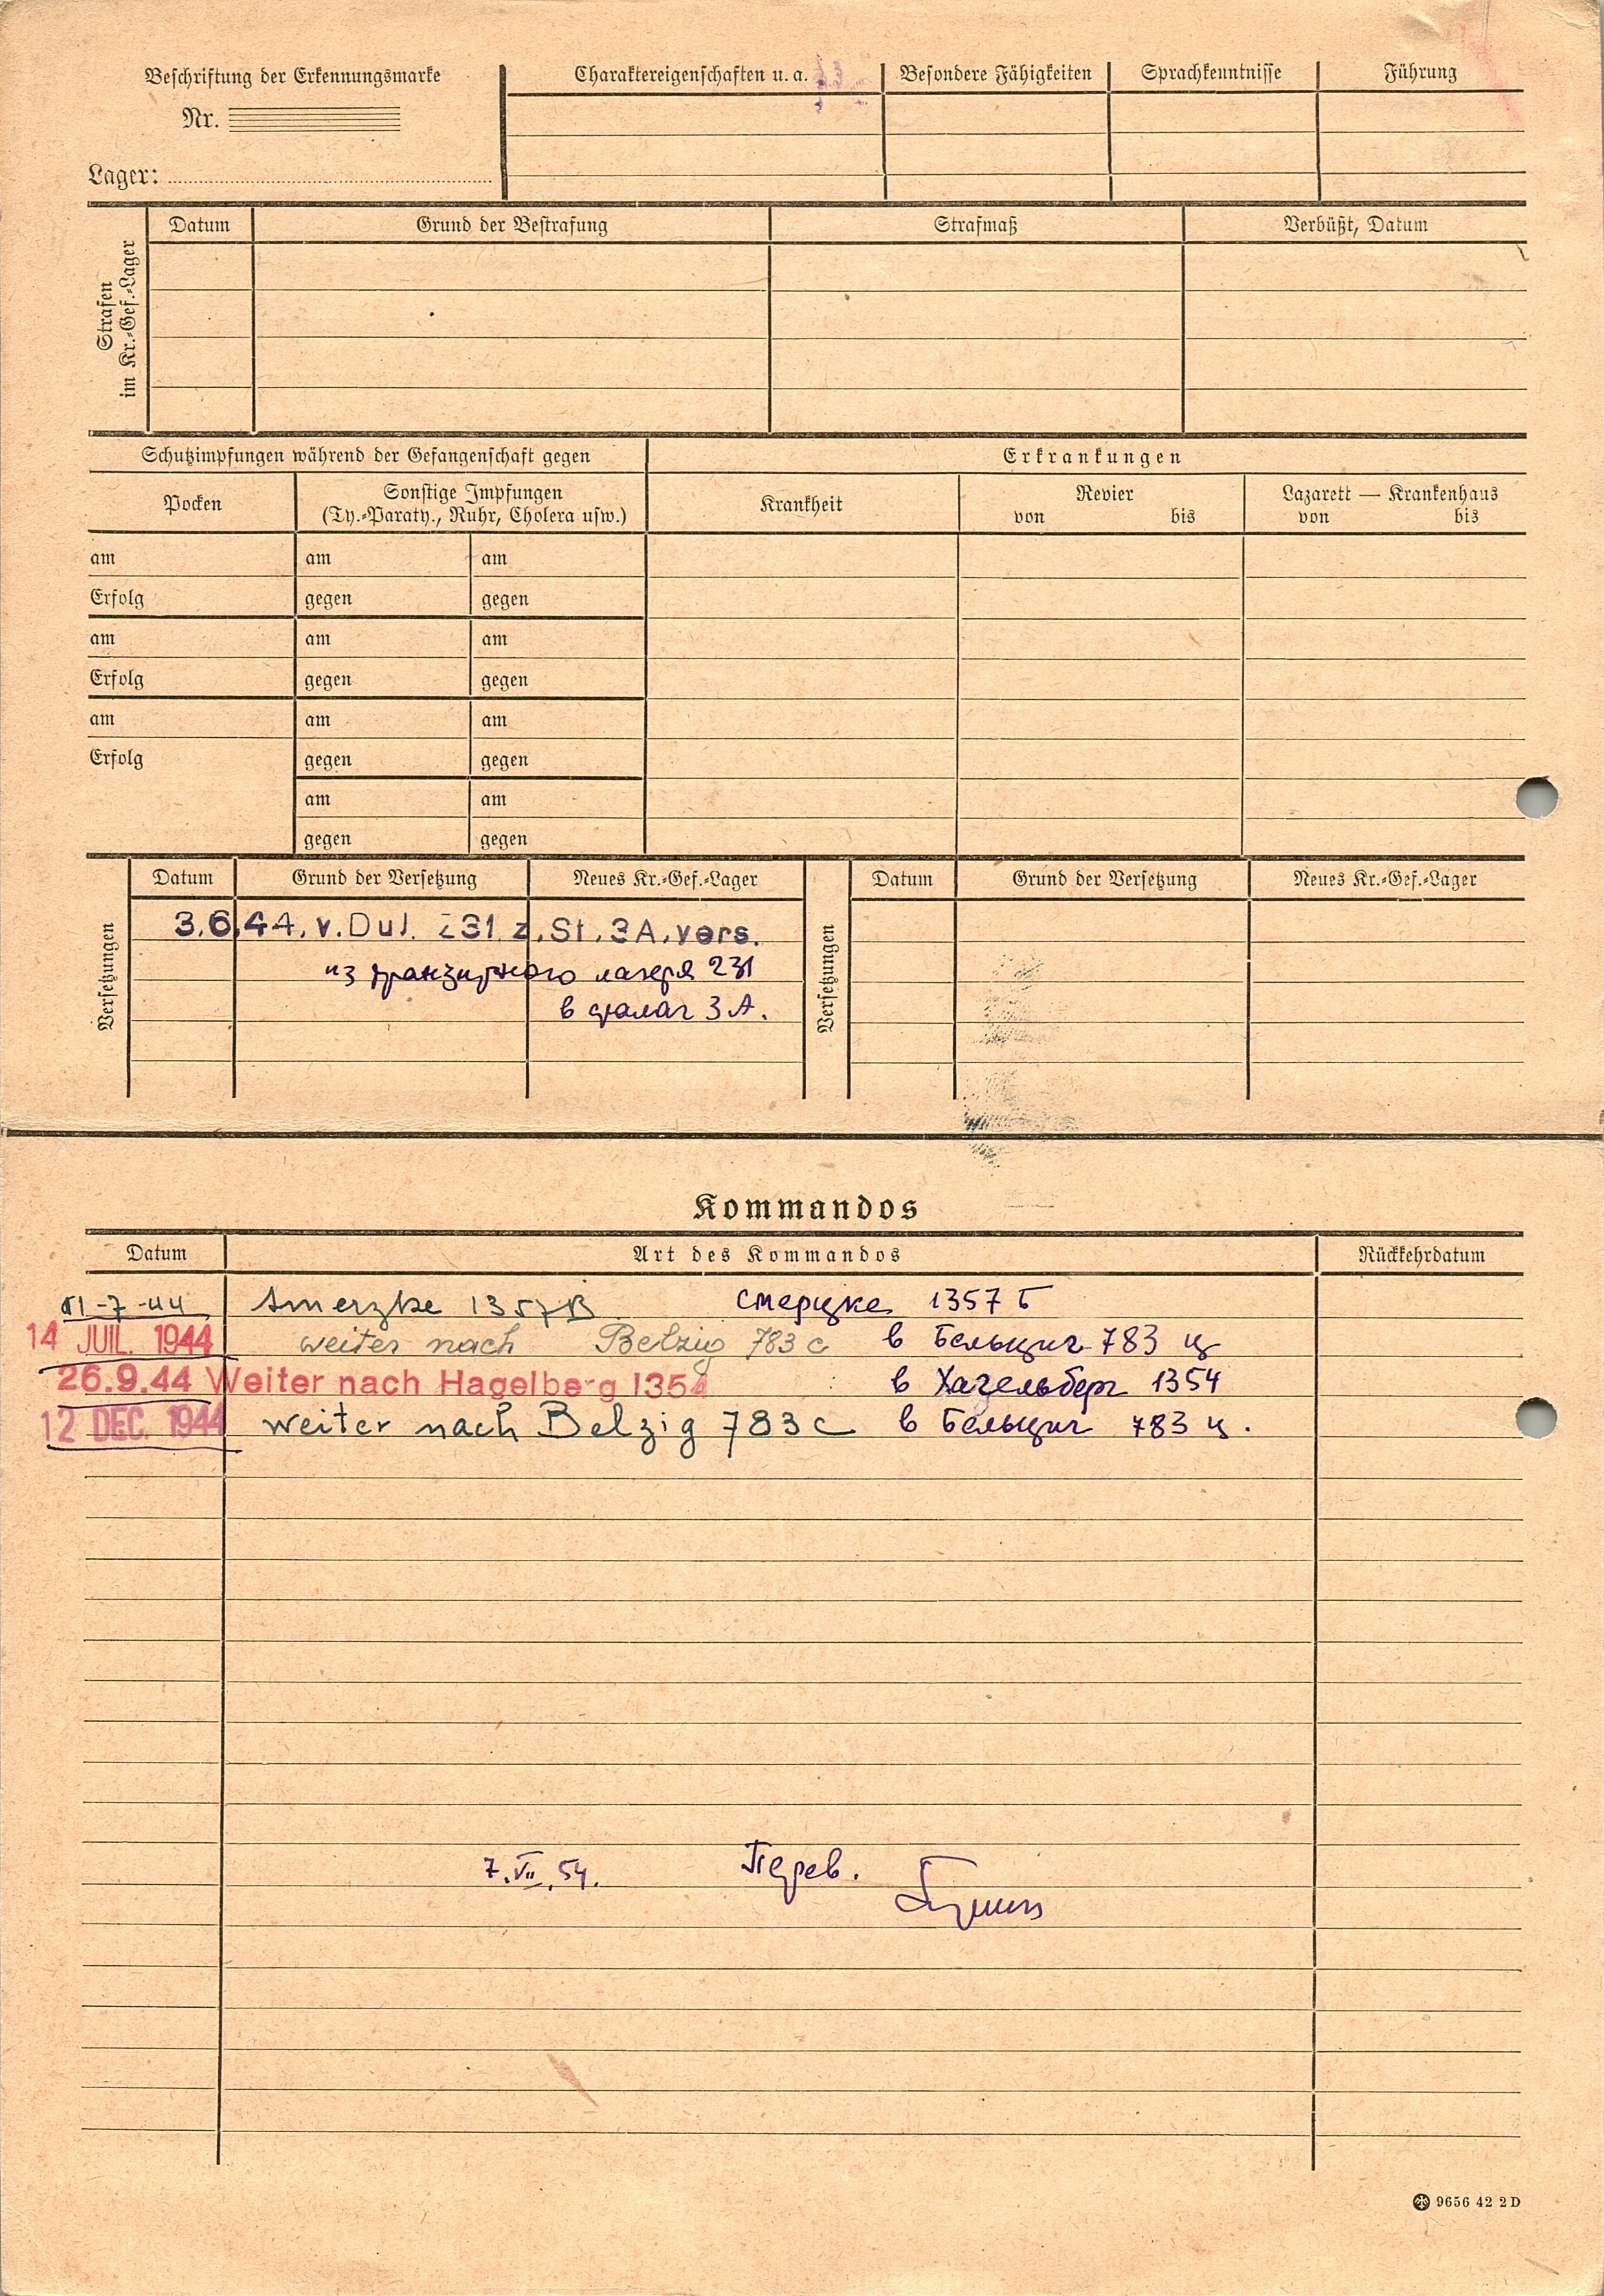 Beschriftung der Erkennungsmarke
Nr.
Lager:
Charaktereigenschaften u. a. Besondere Fähigkeiten Sprachkenntnisse Führung
Strafen
im Kr.-Gef.-Lager
Datum Grund der Bestrafung Strafmaß Verbüßt, Datum
Schutzimpfungen während der Gefangenschaft gegen Erkrankungen
Pocken
Sonstige Impfungen
(Ty.-Paraty., Ruhr, Cholera usw.)
Krankheit
Revier
von bis
Lazarett — Krankenhaus
von bis
am am am
Erfolg gegen gegen
am am am
Erfolg gegen gegen
am am am
Erfolg gegen gegen
am am
gegen gegen
Versetzungen
Datum Grund der Versetzung Neues Kr.-Gef.-Lager
3.6.44. v. Dul. 231. z. St. 3A. vers.
из транзитного лагеря 231
в шталаг 3 А.
Versetzungen
Datum Grund der Versetzung Neues Kr.-Gef.-Lager
Kommandos
Datum Art des Kommandos Rückkehrdatum
-7-44 Smerzke 1357B смерцке 1357 Б
14 JUIL. 1944 weiter nach Belzig 783 c в Бельциг 783 ц
26.9.44 Weiter nach Hagelberg 1354 в Хагельберг 1354
12 DEC. 1944 weiter nach Belzig 783c в Бельциг 783 ц.
7.VII.54. Перев.
9656 42 2D